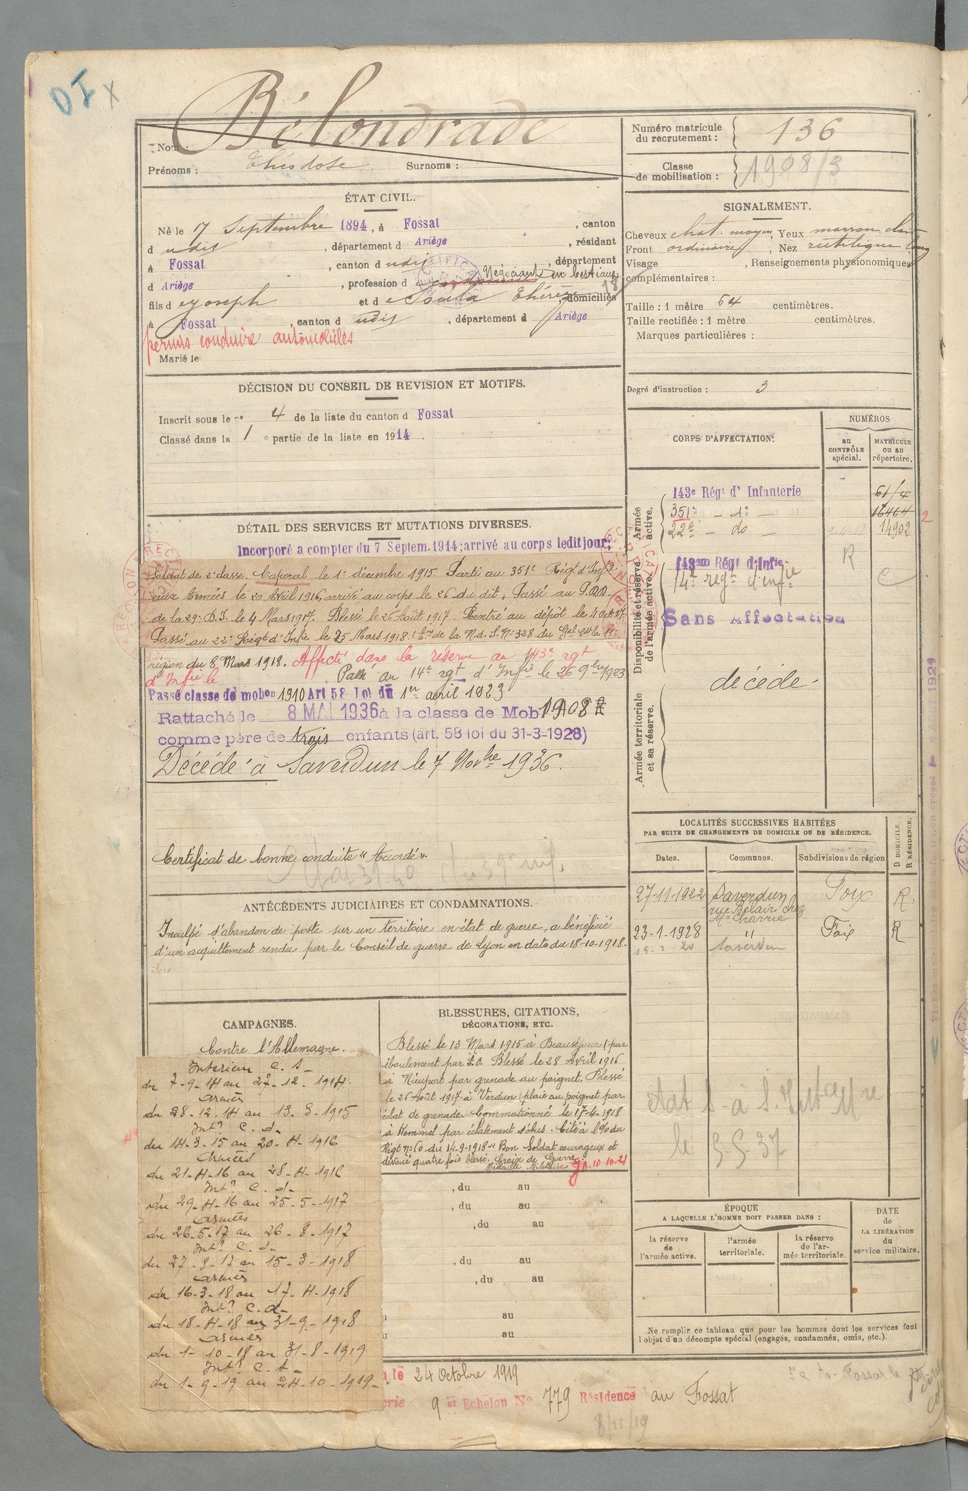 DI X
Bélondrade
Nom :
Prénoms : Théodose Surnoms :
Numéro matricule
du recrutement : 136
Classe
de mobilisation : 1908/3
ÉTAT CIVIL.
Né le 7 Septembre 1894, à Fossat, canton
d udit, département d Ariège, résidant
à Fossat, canton d udit, département
d Ariège, profession d Négociant en bestiaux
fils d e Joseph et d e Soula Thérèse, domiciliés
à Fossat, canton d udit, département d Ariège
permis conduire automobiles
Marié le
SIGNALEMENT.
Cheveux chat. moyen, Yeux marron clair
Front ordinaire, Nez rectiligne long
Visage , Renseignements physionomiques
complémentaires :
Taille : 1 mètre 64 centimètres.
Taille rectifiée : 1 mètre centimètres.
Marques particulières :
Degré d'instruction : 3
DÉCISION DU CONSEIL DE REVISION ET MOTIFS.
Inscrit sous le n° 4 de la liste du canton d Fossat
Classé dans la 1 e partie de la liste en 1914.
CORPS D'AFFECTATION.
NUMÉROS
au
CONTRÔLE
spécial.
MATRICULE
ou au
répertoire.
Armée
active.
143e Régt d'Infanterie 61/4
351e - do - 16464
22e - do - 14902
2
Disponibilité et réserve
de l'armée active.
143eme Régt d'Infie R
14e régt d'infie
Sans Affectation
décédé.
Armée territoriale
et sa réserve.
DÉTAIL DES SERVICES ET MUTATIONS DIVERSES.
Incorporé a compter du 7 Septem. 1914; arrivé au corps ledit jour;
Soldat de 2e classe. Caporal le 1er décembre 1915 Parti au 351e Régt d'Infie
aux Armées le 20 Avril 1916, arrivé au corps le 26 du dit, Passé au
de la 29e D.I. le 4 Mars 1917. Blessé le 26 août 1917 Rentré au dépôt le 4 Oct
Passé au 22e Régt d'Infie le 25 Mars 1918
région du 8 Mars 1918. Affecté dans la réserve au 143e rgt
d'Infie le Passé au 14e rgt d'Infie le 26 9bre 1923
Passé classe de mobon 1910 Art 58 Loi du 1er avril 1923
Rattaché le 8 MAI 1936 à la classe de Mob 1908
comme père de trois enfants (art. 58 loi du 31-3-1928)
Décédé à Saverdun le 7 Novbre 1936.
Certificat de bonne conduite "Accordé"
ANTÉCÉDENTS JUDICIAIRES ET CONDAMNATIONS.
Inculpé d'abandon de poste sur un territoire en état de guerre, a bénéficié
d'un acquittement rendu par le Conseil de guerre de Lyon en date du 18-10-1918.
LOCALITÉS SUCCESSIVES HABITÉES
PAR SUITE DE CHANGEMENTS DE DOMICILE OU DE RÉSIDENCE.
Dates. Communes. Subdivisions de région
D DOMICILE.
R RÉSIDENCE.
27-11-1922 Saverdun Foix R
rue Belair chez
Charrié
23-1-1928 " Foix R
Saverdun
le 5-5-37
CAMPAGNES.
Contre l'Allemagne.
Intérieur C. S-
du 7-9-14 au 27-12-1914.
Armées
du 28-12-14 au 13-3-1915
Intr C. d-
du 14-3-15 au 20-4-1916
Armées
du 21-4-16 au 28-4-1916
Intr C. d-
du 29-4-16 au 25-5-1917
Armées
du 26-5-17 au 26-8-1917
Intr C. d-
du 27-8-17 au 15-3-1918
Armées
du 16-3-18 au 17-4-1918
Intr C. d-
du 18-4-18 au 31-9-1918
Armées
du 1-10-18 au 31-8-1919
Intr C. S-
du 1-9-19 au 24-10-1919-
BLESSURES, CITATIONS,
DÉCORATIONS, ETC.
Blessé le 13 Mars 1915 à Beauséjour (par
éboulement par Blessé le 28 Avril 1916
à Nieuport par grenade au poignet. Blessé
le 26 Août 1917 à Verdun (plaie au poignet par
éclat de grenade. Commotionné le 17-4-1918
à Kemmel par éclatement d'obus. Cité à l'o du
Régt No 10 du 14-9-1918 "Bon Soldat courageux et
dévoué quatre fois blessé. Croix de Guerre
Médaille Militaire 10-10-21
, du au
, du au
, du au
, du au
, du au
au
au
ÉPOQUE
A LAQUELLE L'HOMME DOIT PASSER DANS :
la réserve
de
l'armée active.
l'armée
territoriale.
la réserve
de l'ar-
mée territoriale.
DATE
de
LA LIBÉRATION
du
service militaire.
Ne remplir ce tableau que pour les hommes dont les services font
l'objet d'un décompte spécial (engagés, condamnés, omis, etc.).
le 24 Octobre 1919
9 e Echelon No 779 Résidence au Fossat